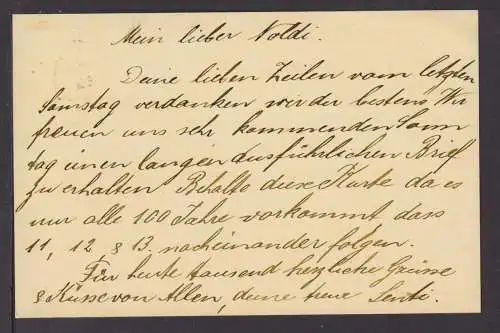 Mein lieber Noldi.
Deine lieben Zeilen vom letzten
Samstag verdanken wir dir bestens Wir
freuen uns sehr kommenden Sonn
tag einen langen ausführlichen Brief
zu erhalten Behalte diese Karte da es
nur alle 100 Jahre vorkommt dass
11, 12, & 13. nacheinander folgen.
Für heute tausend herzliche Grüsse
& Küsse von Allen, deine treue